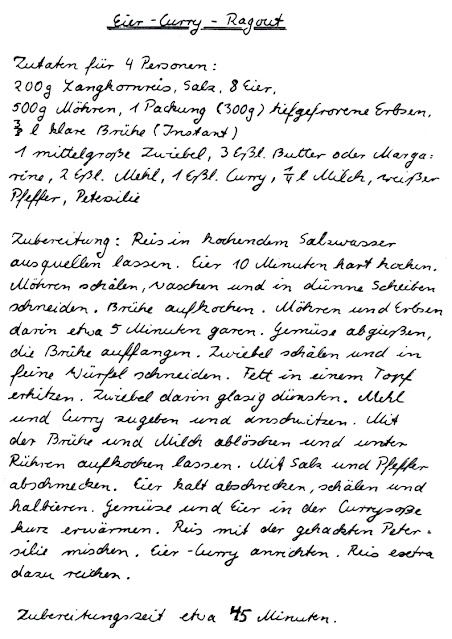 Eier-Curry-Ragout
Zutaten für 4 Personen:
200g Langkornreis, Salz, 8 Eier,
500g Möhren, 1 Packung (300g) tiefgefrorene Erbsen,
l klare Brühe (Instant)
1 mittelgroße Zwiebel, 3 Eßl. Butter oder Marga=
rine, 2 Eßl. Mehl, 1 Eßl. Curry, 1/4 l Milch, weißer
Pfeffer, Petersilie
Zubereitung: Reis in kochendem Salzwasser
ausquellen lassen. Eier 10 Minuten hart kochen.
Möhren schälen, waschen und in dünne Scheiben
schneiden. Brühe aufkochen. Möhren und Erbsen
darin etwa 5 Minuten garen. Gemüse abgießen,
die Brühe auffangen. Zwiebel schälen und in
feine Würfel schneiden. Fett in einem Topf
erhitzen. Zwiebel darin glasig dünsten. Mehl
und Curry zugeben und anschwitzen. Mit
der Brühe und Milch ablöschen und unter
Rühren aufkochen lassen. Mit Salz und Pfeffer
abschmecken. Eier kalt abschrecken, schälen und
halbieren. Gemüse und Eier in der Currysoße
kurz erwärmen. Reis mit der gehackten Peter=
silie mischen. Eier-Curry anrichten. Reis extra
dazu reichen.
Zubereitungszeit etwa 45 Minuten.